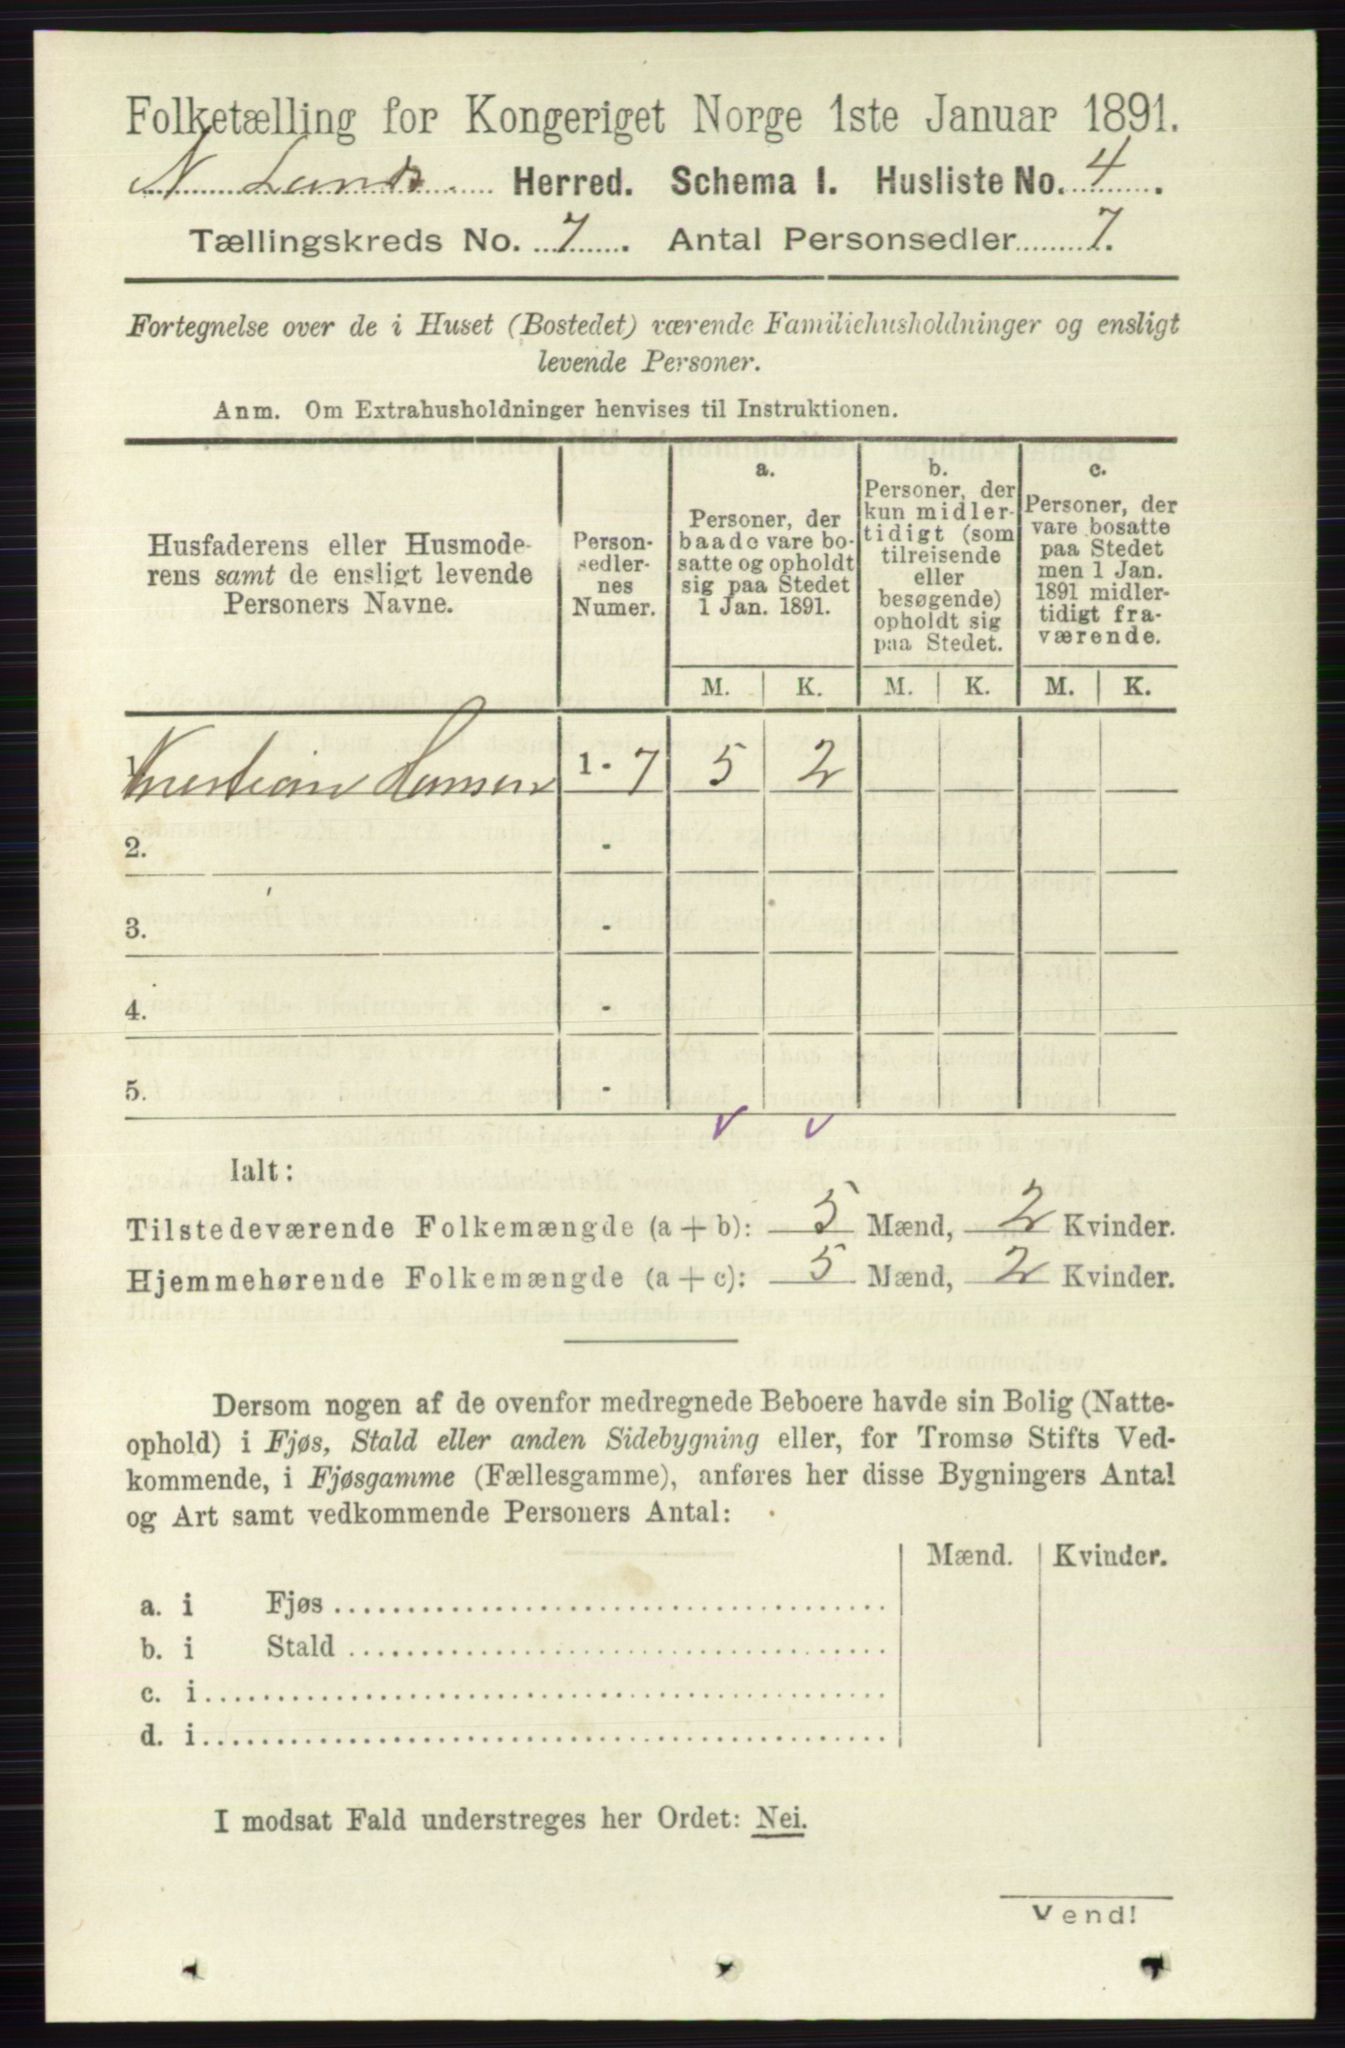 Folketælling for Kongeriget Norge 1ste Januar 1891.
N Lands Herred. Schema I. Husliste No. 4.
Tællingskreds No. 7. Antal Personsedler 7.
Fortegnelse over de i Huset (Bostedet) værende Familiehusholdninger og ensligt
levende Personer.
Anm. Om Extrahusholdninger henvises til Instruktionen.
Husfaderens eller Husmode-
rens samt de ensligt levende
Personers Navne.
Person-
sedler-
nes
Numer.
a.
Personer, der
baade vare bo-
satte og opholdt
sig paa Stedet
1 Jan. 1891.
b.
Personer, der
kun midler-
tidigt (som
tilreisende
eller
besøgende)
opholdt sig
paa Stedet.
c.
Personer, der
vare bosatte
paa Stedet
men 1 Jan.
1891 midler-
tidigt fra-
værende.
M. K. M. K. M. K.
1. Kristian Hansen 1 - 7 5 2
2. -
3. -
4. -
5. -
Ialt:
Tilstedeværende Folkemængde (a + b): 5 Mænd, 2 Kvinder.
Hjemmehørende Folkemængde (a + c): 5 Mænd, 2 Kvinder.
Dersom nogen af de ovenfor medregnede Beboere havde sin Bolig (Natte-
ophold) i Fjøs, Stald eller anden Sidebygning eller, for Tromsø Stifts Ved-
kommende, i Fjøsgamme (Fællesgamme), anføres her disse Bygningers Antal
og Art samt vedkommende Personers Antal:
Mænd. Kvinder.
a. i Fjøs
b. i Stald
c. i
d. i
I modsat Fald understreges her Ordet: Nei.
Vend!